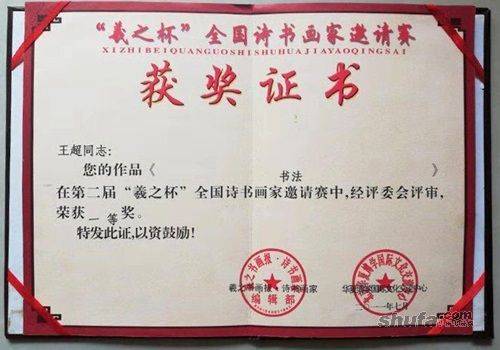 “羲之杯”全国诗书画家邀请赛
XIZHIBEIQUANGUOSHISHUHUAJIAYAOQINGSAI
获奖证书
王超同志:
您的作品《 书法 》
在第二届“羲之杯”全国诗书画家邀请赛中,经评委会评审,
荣获 一等 奖。
特发此证,以资鼓励!
羲之书画报·诗书画家
编辑部
shufa